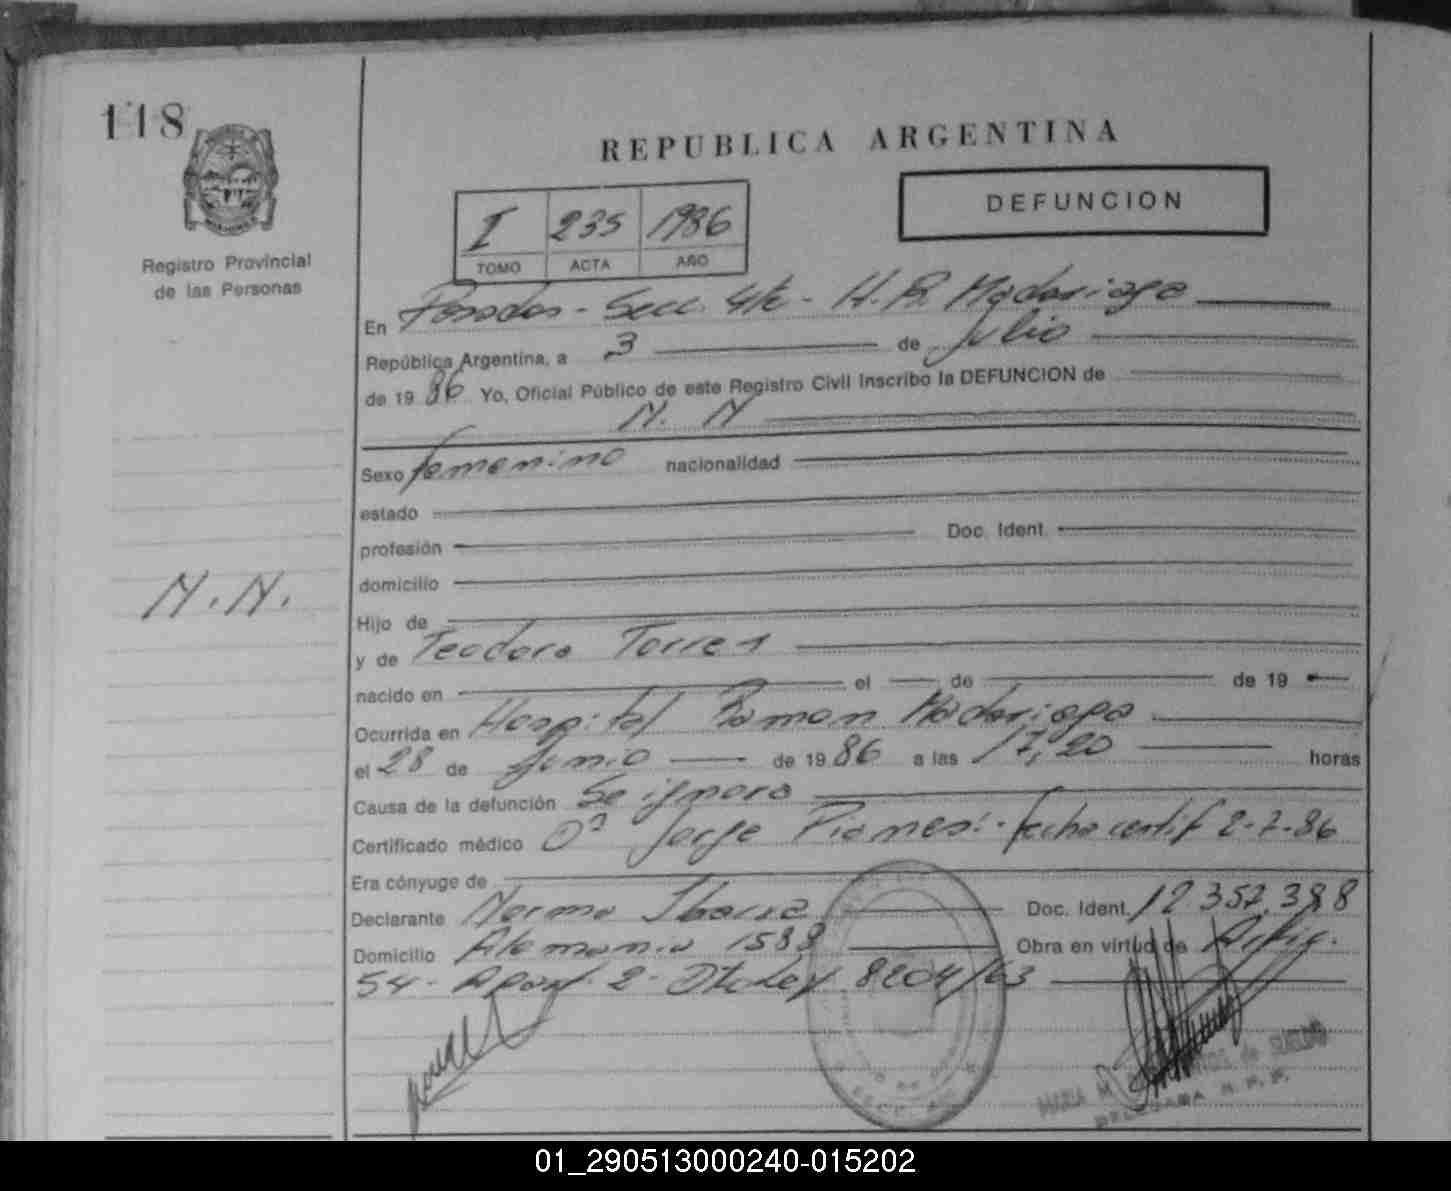 118
REPUBLICA ARGENTINA
DEFUNCION
I 235 1986
TOMO ACTA AÑO
Registro Provincial
de las Personas
En Posadas - Secc. 4ta - H. R. Madariaga
República Argentina, a 3 de Julio
de 1986 Yo, Oficial Público de este Registro Civil Inscribo la DEFUNCION de
N. N
Sexo femenino nacionalidad
estado
profesión Doc. Ident.
domicilio
N.N.
Hijo de
y de Teodora Torres
nacido en el de de 19
Ocurrida en Hospital Ramon Madariaga
el 28 de Junio de 1986 a las 17,20 horas
Causa de la defunción Se ignora
Certificado médico Dr Jorge Piomesi - fecha certif 2-7-86
Era cónyuge de
Declarante Norma Ibarra Doc. Ident. 12.357.388
Domicilio Alemania 1588 Obra en virtud de Artic.
54 - Apart. 2 - Dto Ley 8204/63
MARIA M de
DELEGADA R. P. P.
01_290513000240-015202